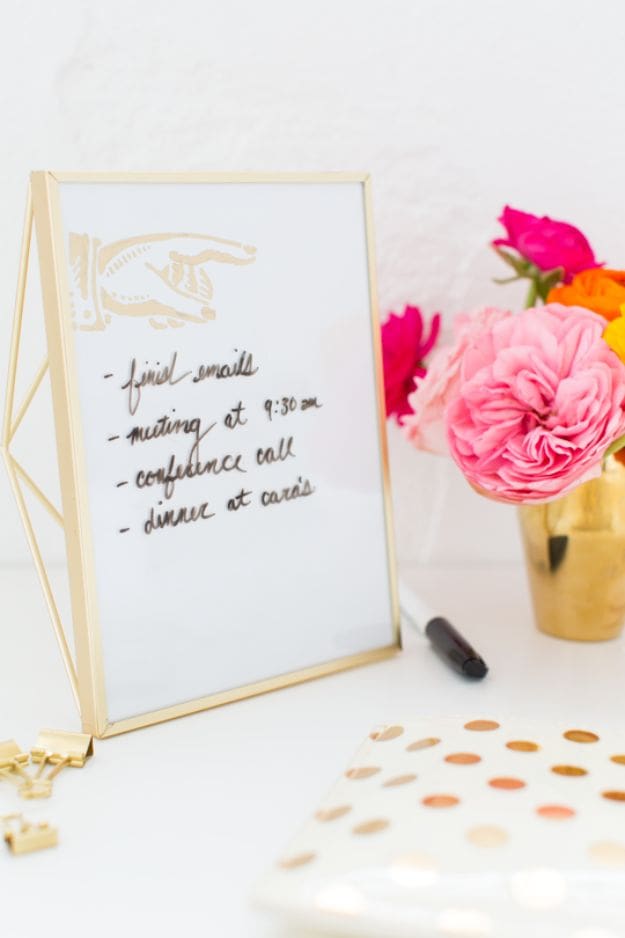 - finish emails
- meeting at 9:30 am
- conference call
- dinner at cara's